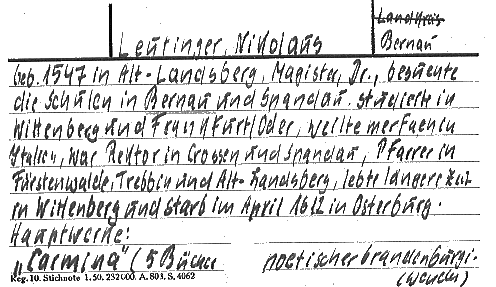 Landkreis
Leutinger, Nikolaus Bernau
geb. 1547 in Alt-Landsberg, Magister, Dr., besuchte
die Schulen in Bernau und Spandau. studierte in
Wittenberg und Frankfurt/Oder, weilte in
Italien, war Rektor in Crossen und Spandau, Pfarrer in
Fürstenwalde, Trebbin und Alt-Landsberg, lebte längere Zeit
in Wittenberg und starb im April 1612 in Osterburg.
Hauptwerke:
"Carmina" (5 Bücher poetischer brandenburgi-
Reg. 10. Stichnote 1. 50. 232000. A. 803. S. 4062
(wenden)